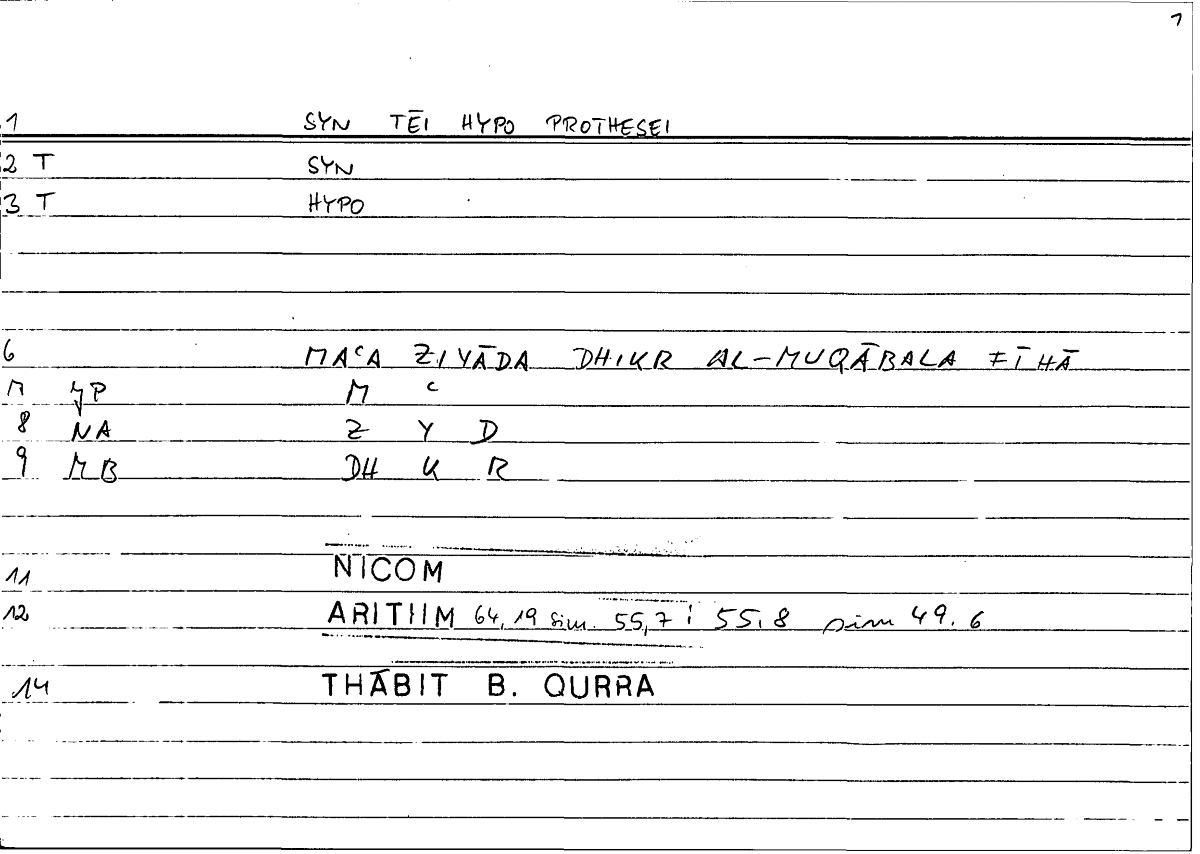 1
1 SYN TĒI HYPO PROTHESEI
2 T SYN
3 T HYPO
6 MAᶜA ZIYĀDA DHIKR AL-MUQĀBALA FĪHĀ
M ᶜ
8 NA Z Y D
9 MB DH K R
11 NICOM
12 ARITHM 64,19 sim. 55,7; 55,8 sim 49.6
14 THĀBIT B. QURRA